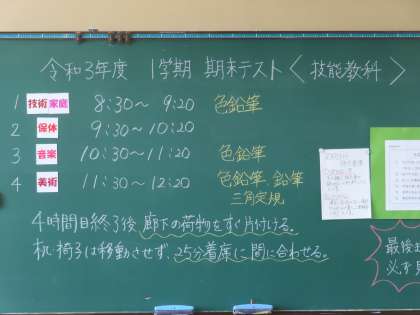 令和3年度 1学期 期末テスト〈技能教科〉
1 技術家庭 8:30〜 9:20 色鉛筆
2 保体 9:30〜10:20
3 音楽 10:30〜11:20 色鉛筆
4 美術 11:30〜12:20 色鉛筆 鉛筆
三角定規
4時間目終了後、廊下の荷物をすぐ片付ける。
机・椅子は移動させず、25分着席に間に合わせる。
最後ま
必ず見